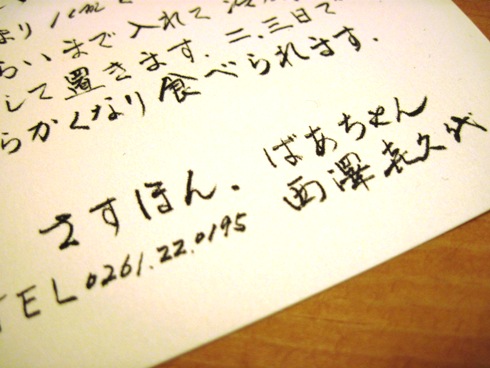 より1cmと
らいまで入れて
して置きます．二、三日で
らかくなり食べられます．
さすほん．ばあちゃん
西澤喜久代
TEL0261.22.0195